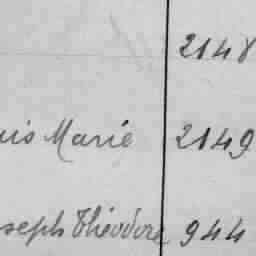 2148
uis Marie 2149
seph Théodore 944